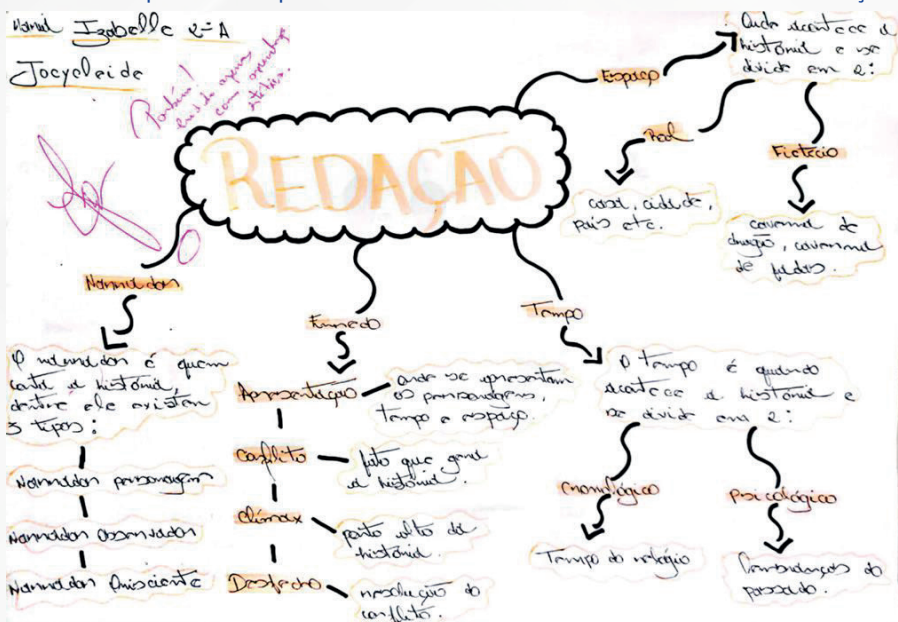 Izabelle 2ª A
Jocycleide
Parabéns!
com a
REDAÇÃO
Espaço
Onde acontece a
história e se
divide em 2:
Real
casa, cidade,
país etc.
Fictício
caverna de
dragão, caverna
de fadas.
Narrador
O narrador é quem
conta a história,
dentre ele existem
3 tipos:
Narrador personagem
Narrador observador
Narrador Onisciente
Enredo
Apresentação
onde se apresentam
os personagens,
tempo e espaço.
Conflito
fato que gera
a história.
Clímax
ponto alto da
história.
Desfecho
resolução do
conflito.
Tempo
O tempo é quando
acontece a história e
se divide em 2:
Cronológico
Tempo do relógio
Psicológico
Lembranças do
passado.